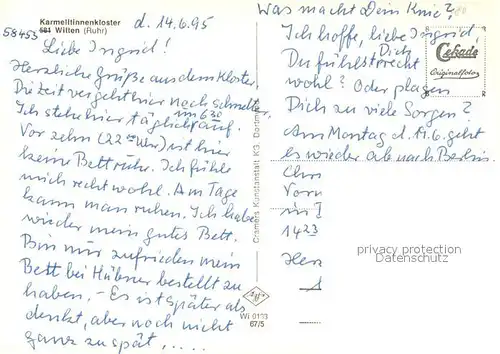 Karmelitinnenkloster
581 Witten (Ruhr)
58453
d. 14.6.95
Liebe Ingrid!
Herzliche Grüße aus dem Kloster.
Die Zeit vergeht hier noch schneller.
Ich stehe hier täglich um 6 30 auf.
Vor zehn (22 00 Uhr) ist hier
keine Bettruhe. Ich fühle
mich recht wohl. Am Tage
kann man ruhen. Ich habe
wieder mein gutes Bett.
Bin nur zufrieden mein
Bett bei Hübner bestellt zu
haben. – Es ist später als
denkt, aber noch nicht
ganz zu spät, .....
Was macht Dein Knie?
Ich hoffe, liebe Ingrid
Du fühlst Dich recht
wohl? Oder plagen
Dich zu viele Sorgen?
Am Montag d. 19.6. geht
es wieder ab nach Berlin.
Chr
Vorm
in
14 23
Herz
Cekade
Originalfoto
Cramers Kunstanstalt KG. Dortmund
Wi 0133
67/5
privacy protection
Datenschutz